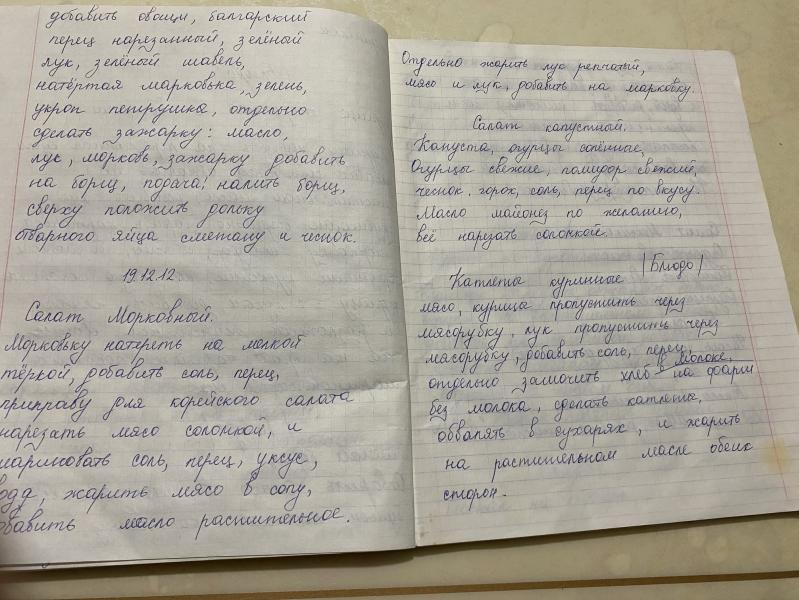 добавить овощи, балгарский
перец нарезанный, зелёный
лук, зелёный шавель,
натёртая марковька, зелень,
укроп петрушка, отдельно
сделать зажарку: масло,
лук, морковь, зажарку добавить
на борщ, подача: налить борщ,
сверху положить дольку
отварного яйца сметану и чеснок.
19.12.12
Салат Морковный.
Морковьку натереть на мелкой
тёркой, добавить соль, перец,
приправу для корейского салата
нарезать мясо солонкой, и
мариновать соль, перец, уксус,
вода, жарить мясо в сопу,
добавить масло растительное.
Отдельно жарить лук репчатый,
мясо и лук, добавить на марковку.
Салат капустный.
Капуста, огурцы солённые,
Огурцы свежие, помидор свежий,
чеснок. горох, соль, перец по вкусу.
Масло майонез по желанию,
всё нарезать солонкой.
Катлеты куринные |Блюдо|
мясо, курица пропустить через
мясорубку, лук пропустить через
мясорубку, добавить соль, перец,
отдельно замочить хлеб в молоке, на фарш
без молока, сделать катлеты,
обвалять в сухарях, и жарить
на растительном масле обеих
сторон.